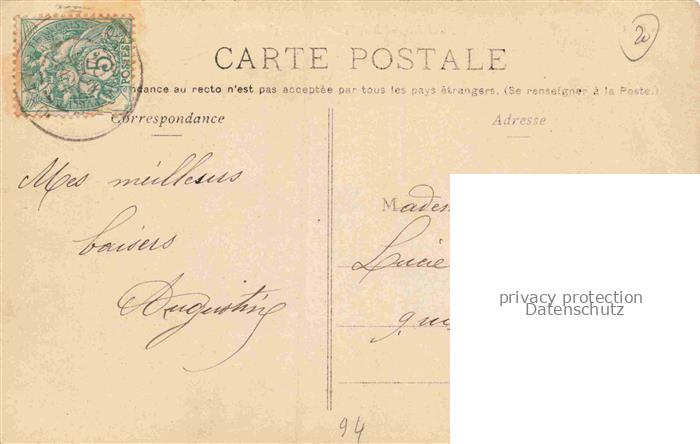 CARTE POSTALE
ndance au recto n'est pas acceptée par tous les pays étrangers. (Se renseigner à la Poste.)
Correspondance
Adresse
5
POSTES
20
Mes meilleurs
baisers
Augustin
Madem
Lucie
9. rue
94
privacy protection
Datenschutz